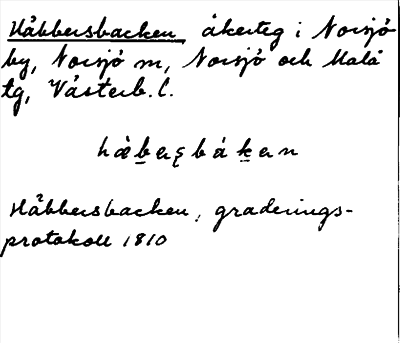 Håbbersbacken åkerteg i Norsjö
by, Norsjö sn, Norsjö och Malå
tg, Västerb. l.
håbersbáken
Håbbersbacken, graderings-
protokoll 1810